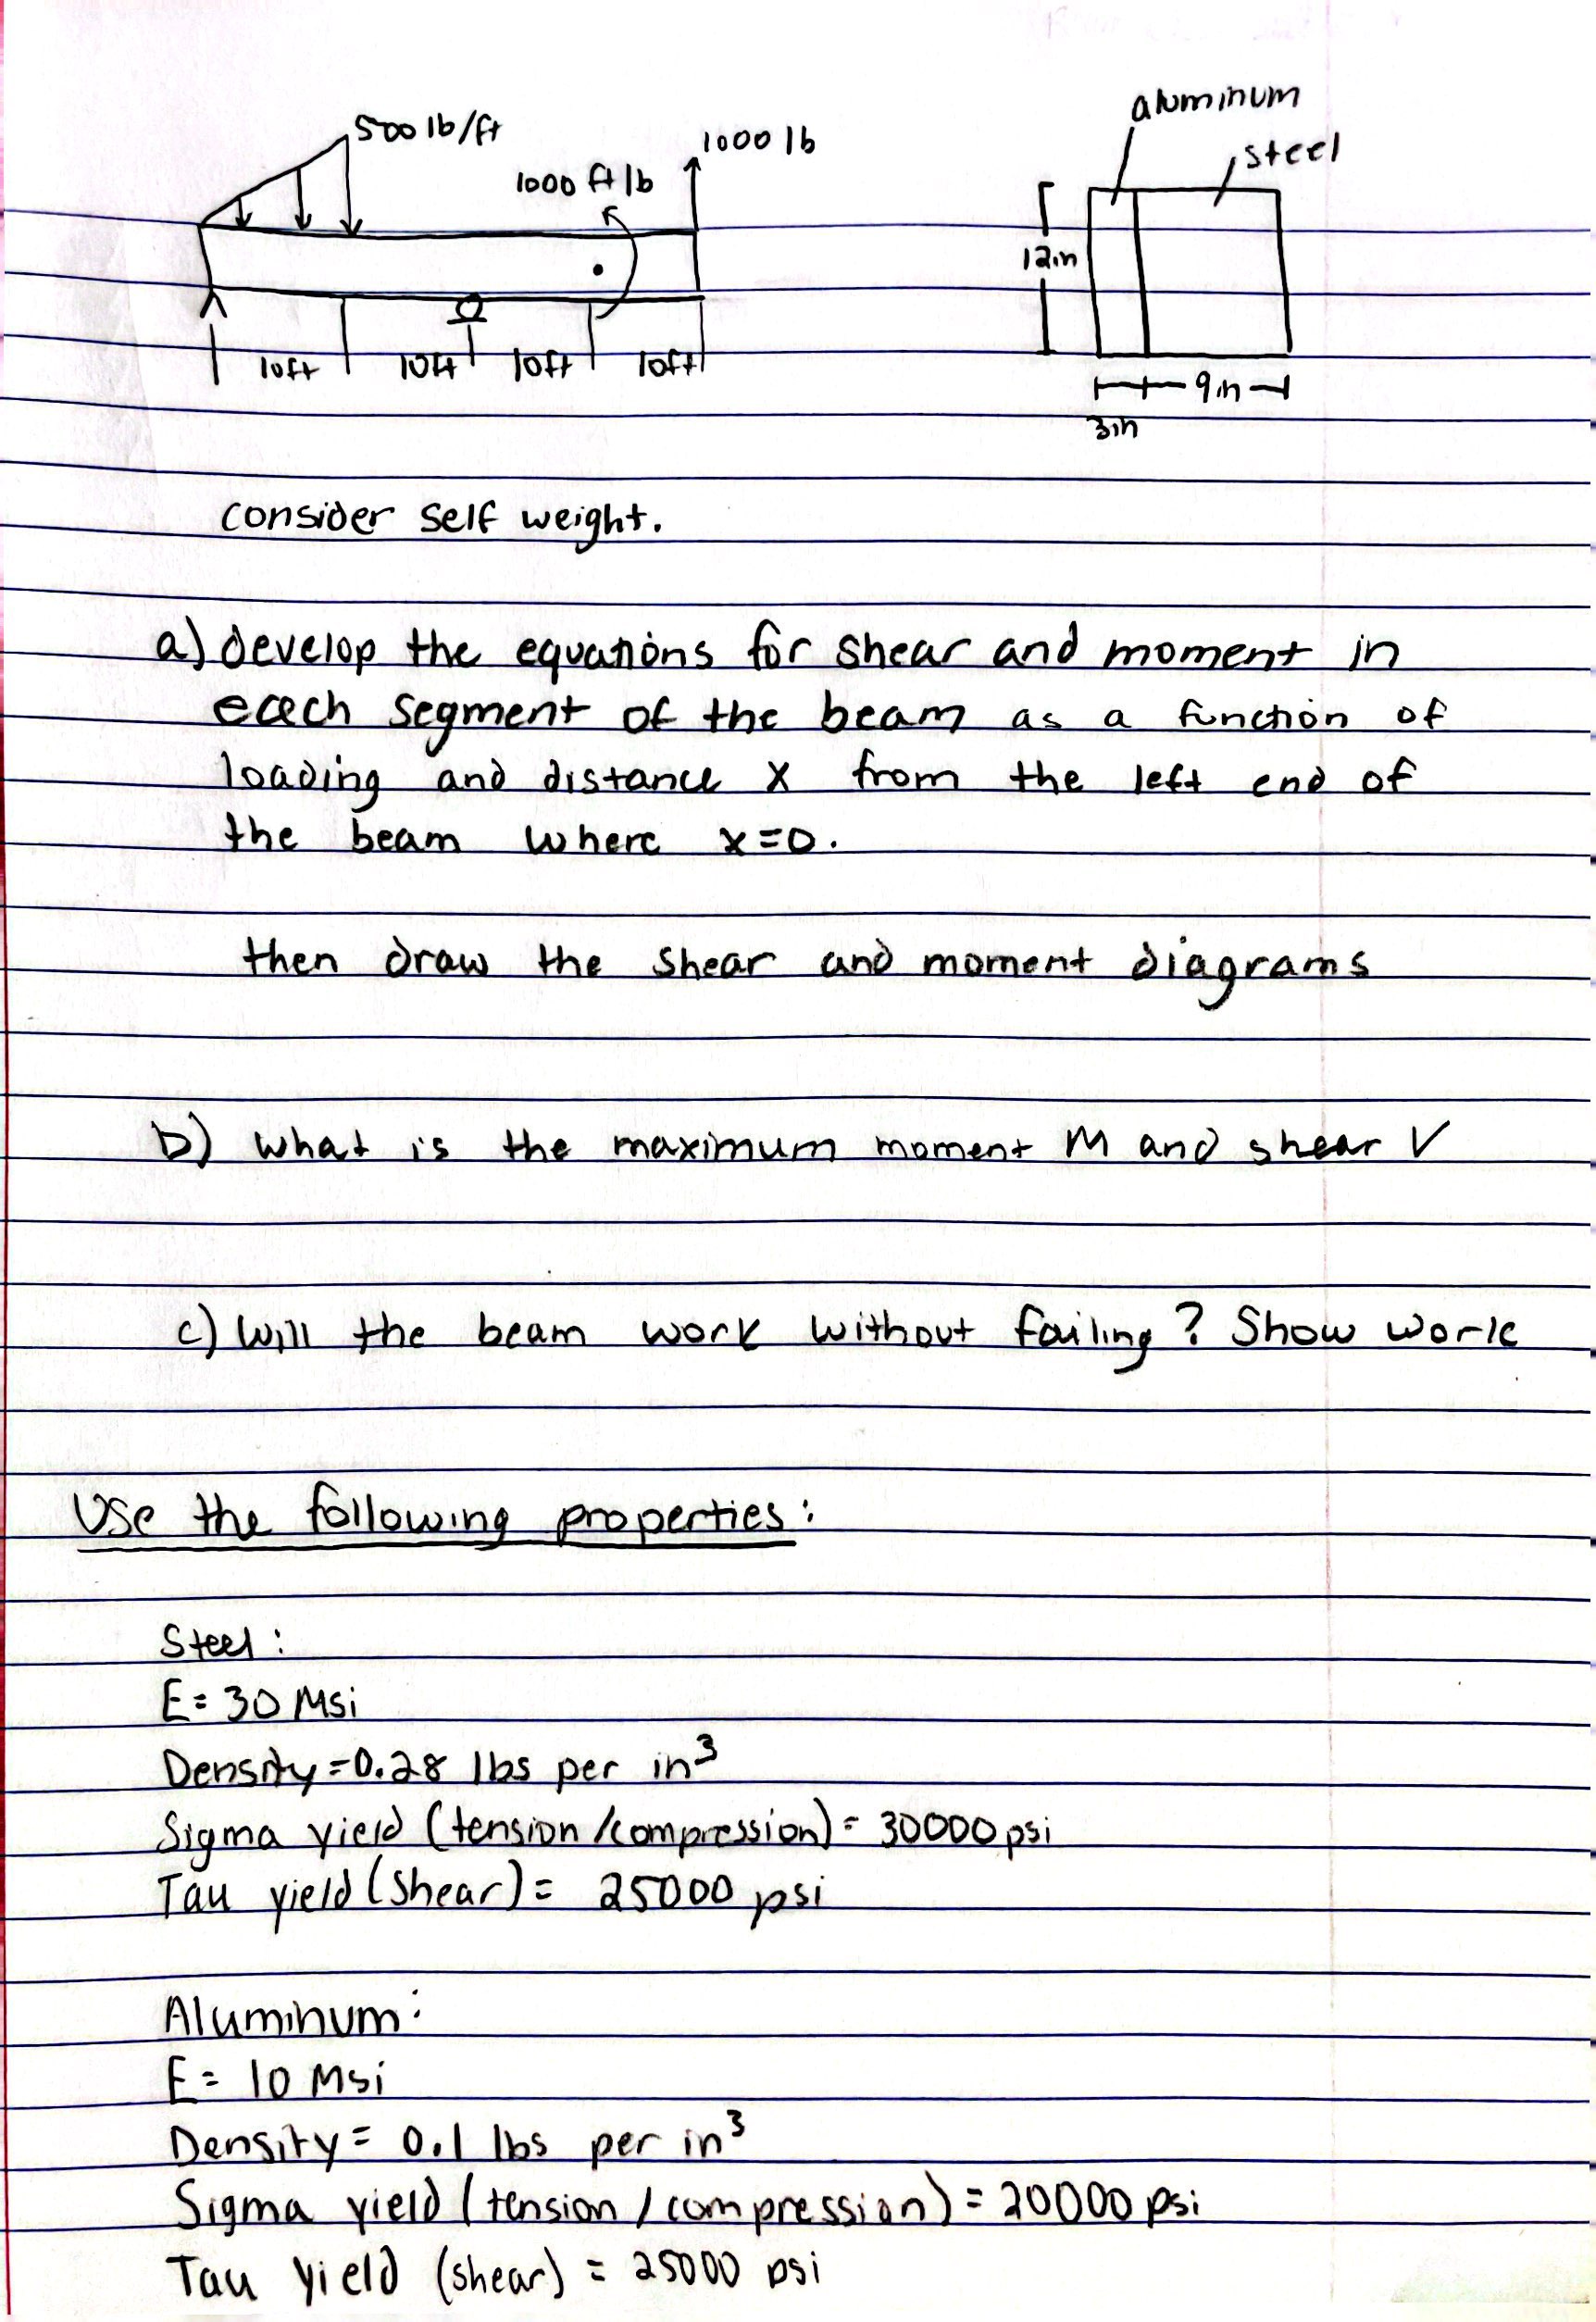 aluminum
500 lb/ft
1000 lb
steel
1000 ft lb
12in
10ft 10ft 10ft 10ft
9in
3in
consider self weight.
a) develop the equations for shear and moment in
each segment of the beam as a function of
loading and distance x from the left end of
the beam where x=0.
then draw the shear and moment diagrams
b) what is the maximum moment M and shear V
c) Will the beam work without failing? Show work
Use the following properties:
Steel:
E= 30 Msi
Density=0.28 lbs per in³
Sigma yield (tension/compression)= 30000psi
Tau yield (shear)= 25000 psi
Aluminum:
E= 10 Msi
Density= 0.1 lbs per in³
Sigma yield (tension/compression)= 20000psi
Tau yield (shear) = 25000 psi